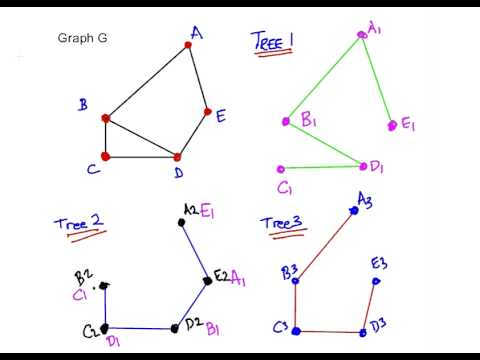 Graph G
A
B
C
D
E
TREE 1
A1
B1
E1
D1
C1
Tree 2
A2 E1
B2
C1
E2 A1
C2
D1
D2 B1
Tree 3
A3
B3
E3
C3
D3